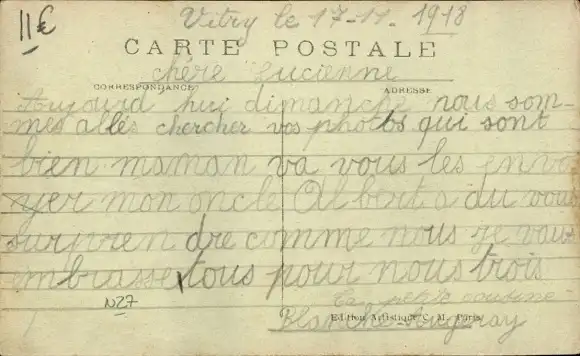 11€
Vitry le 17-11-1918
CARTE POSTALE
chère Lucienne
CORRESPONDANCE ADRESSE
Aujourd'hui dimanche nous som-
mes allés chercher vos photos qui sont
bien maman va vous les envo
yer mon oncle Albert a du vous
surpren dre comme nous je vous
embrasse tous pour nous trois
N27
ta petite cousine
Edition Artistique C. M. Paris
Blanche